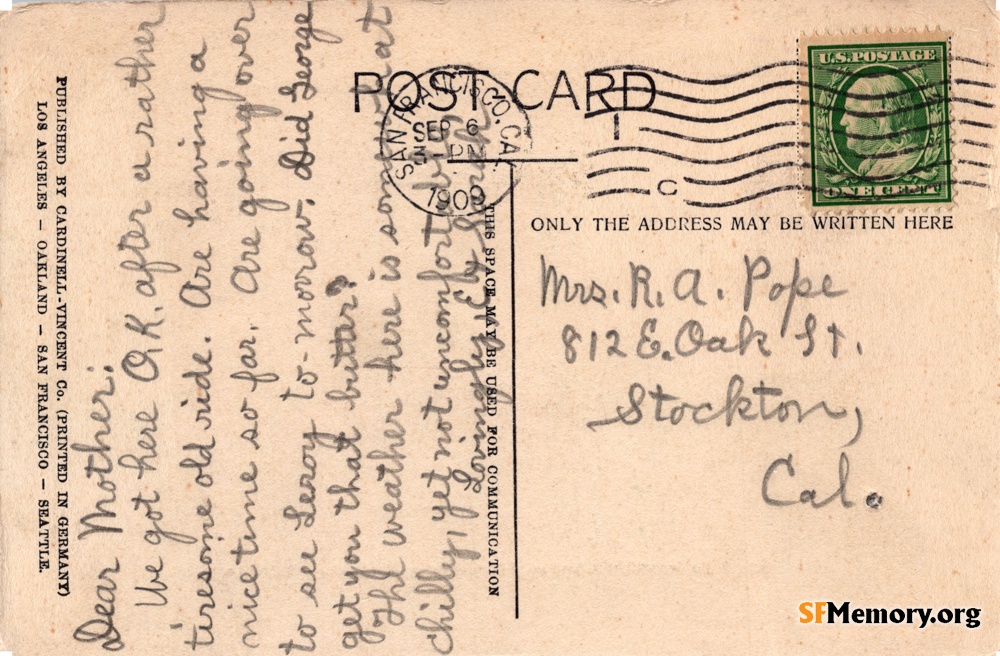 PUBLISHED BY CARDINELL-VINCENT Co. (PRINTED IN GERMANY)
LOS ANGELES – OAKLAND – SAN FRANCISCO – SEATTLE.
Dear Mother:
We got here O.K. after a rather
tiresome old ride. Are having a
nice time so far. Are going over
to see Leroy to-morrow. Did George
get you that butter?
The weather here is somewhat
chilly, yet not uncomfortably
Lovingly
THIS SPACE MAY BE USED FOR COMMUNICATION
POST CARD
SAN FRANCISCO, CAL
SEP 6
PM
1909
1
C
U.S. POSTAGE
ONE CENT
ONLY THE ADDRESS MAY BE WRITTEN HERE
Mrs. R. A. Pope
812 E. Oak St.
Stockton,
Cal.
SFMemory.org